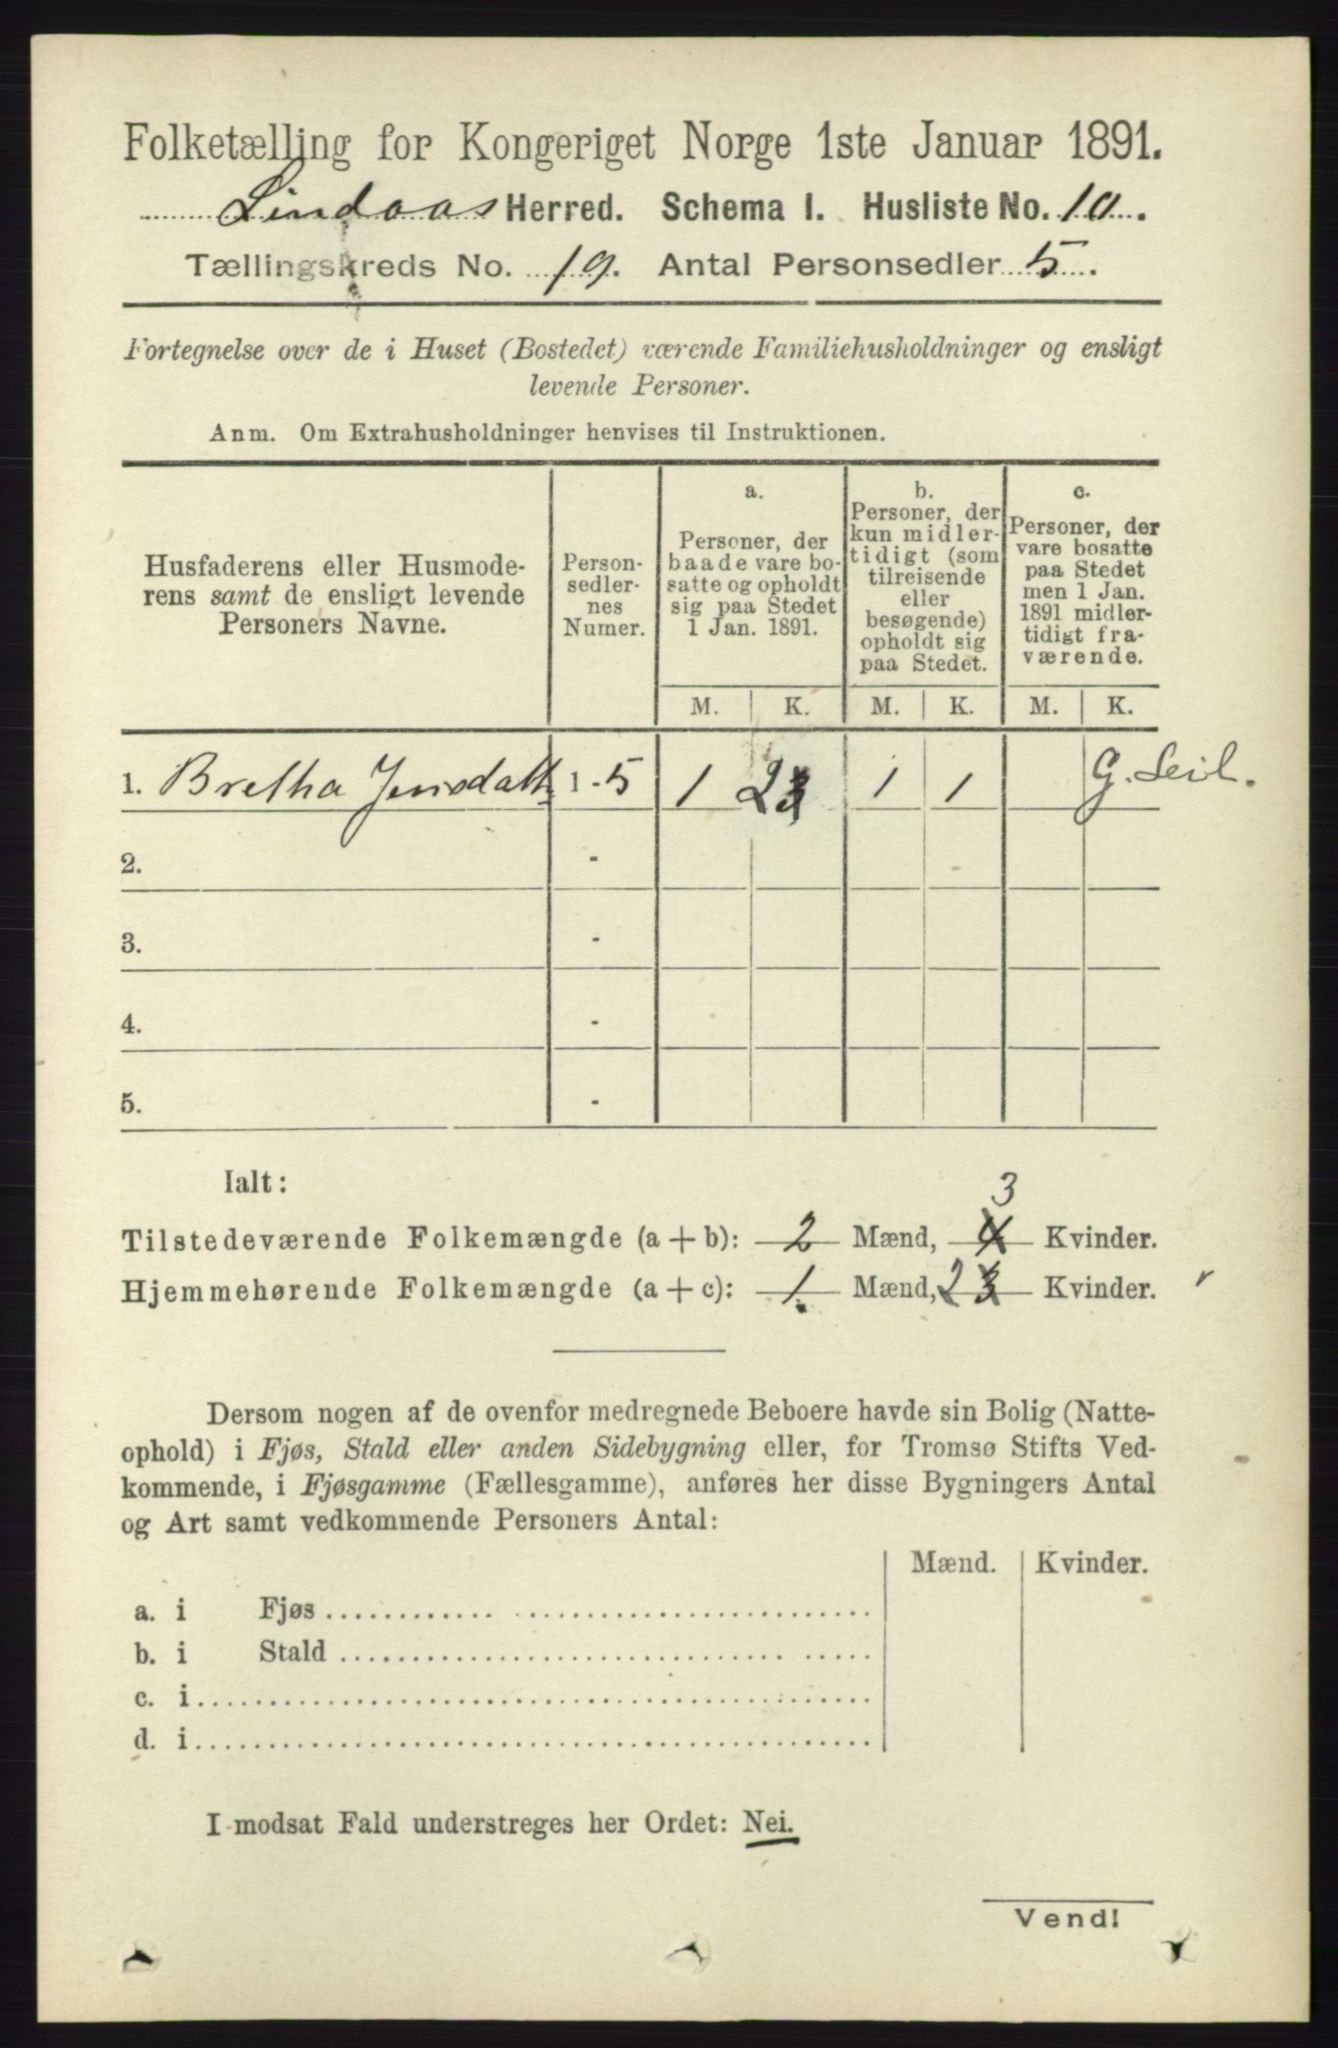 Folketælling for Kongeriget Norge 1ste Januar 1891.
Lindaas Herred. Schema I. Husliste No. 10.
Tællingskreds No. 19. Antal Personsedler 5.
Fortegnelse over de i Huset (Bostedet) værende Familiehusholdninger og ensligt
levende Personer.
Anm. Om Extrahusholdninger henvises til Instruktionen.
Husfaderens eller Husmode-
rens samt de ensligt levende
Personers Navne.
Person-
sedler-
nes
Numer.
a.
Personer, der
baade vare bo-
satte og opholdt
sig paa Stedet
1 Jan. 1891.
b.
Personer, der
kun midler-
tidigt (som
tilreisende
eller
besøgende)
opholdt sig
paa Stedet.
c.
Personer, der
vare bosatte
paa Stedet
men 1 Jan.
1891 midler-
tidigt fra-
værende.
M. K. M. K. M. K.
1. Bretha Jensdatt 1 - 5 1 2 3 1 1 G. Seil.
2. -
3. -
4. -
5. -
Ialt:
3
Tilstedeværende Folkemængde (a + b): 2 Mænd, 4 Kvinder.
Hjemmehørende Folkemængde (a + c): 1. Mænd, 2 3 Kvinder.
Dersom nogen af de ovenfor medregnede Beboere havde sin Bolig (Natte-
ophold) i Fjøs, Stald eller anden Sidebygning eller, for Tromsø Stifts Ved-
kommende, i Fjøsgamme (Fællesgamme), anføres her disse Bygningers Antal
og Art samt vedkommende Personers Antal:
Mænd. Kvinder.
a. i Fjøs
b. i Stald
c. i
d. i
I modsat Fald understreges her Ordet: Nei.
Vend!